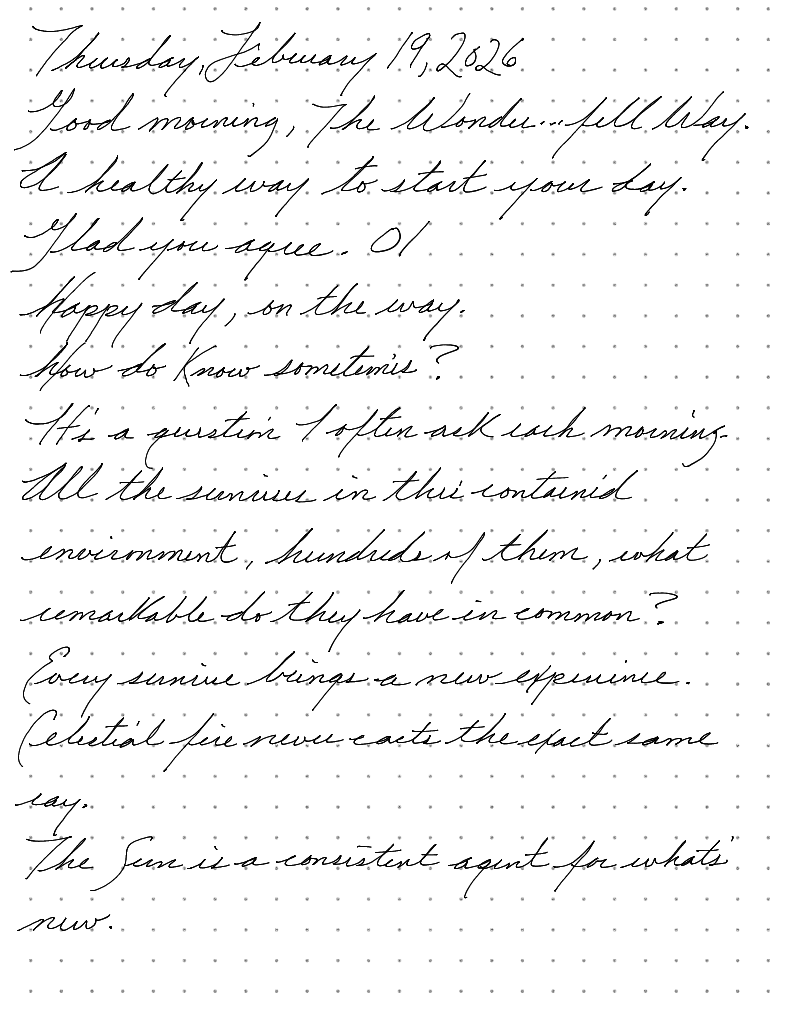 Thursday, February 19, 2026
Good morning, The Wonder...fell Way.
A healthy way to start your day.
Glad you agree. 01
Happy day, on the way.
How do Know sometimes?
It's a question I often ask each morning.
All the sunrises in this contained
environment, hundreds of them, what
remarkable do they have in common?
Every sunrise brings a new experience.
Celestial fire never casts the exact same
ray.
The Sun is a consistent agent for what's
new.